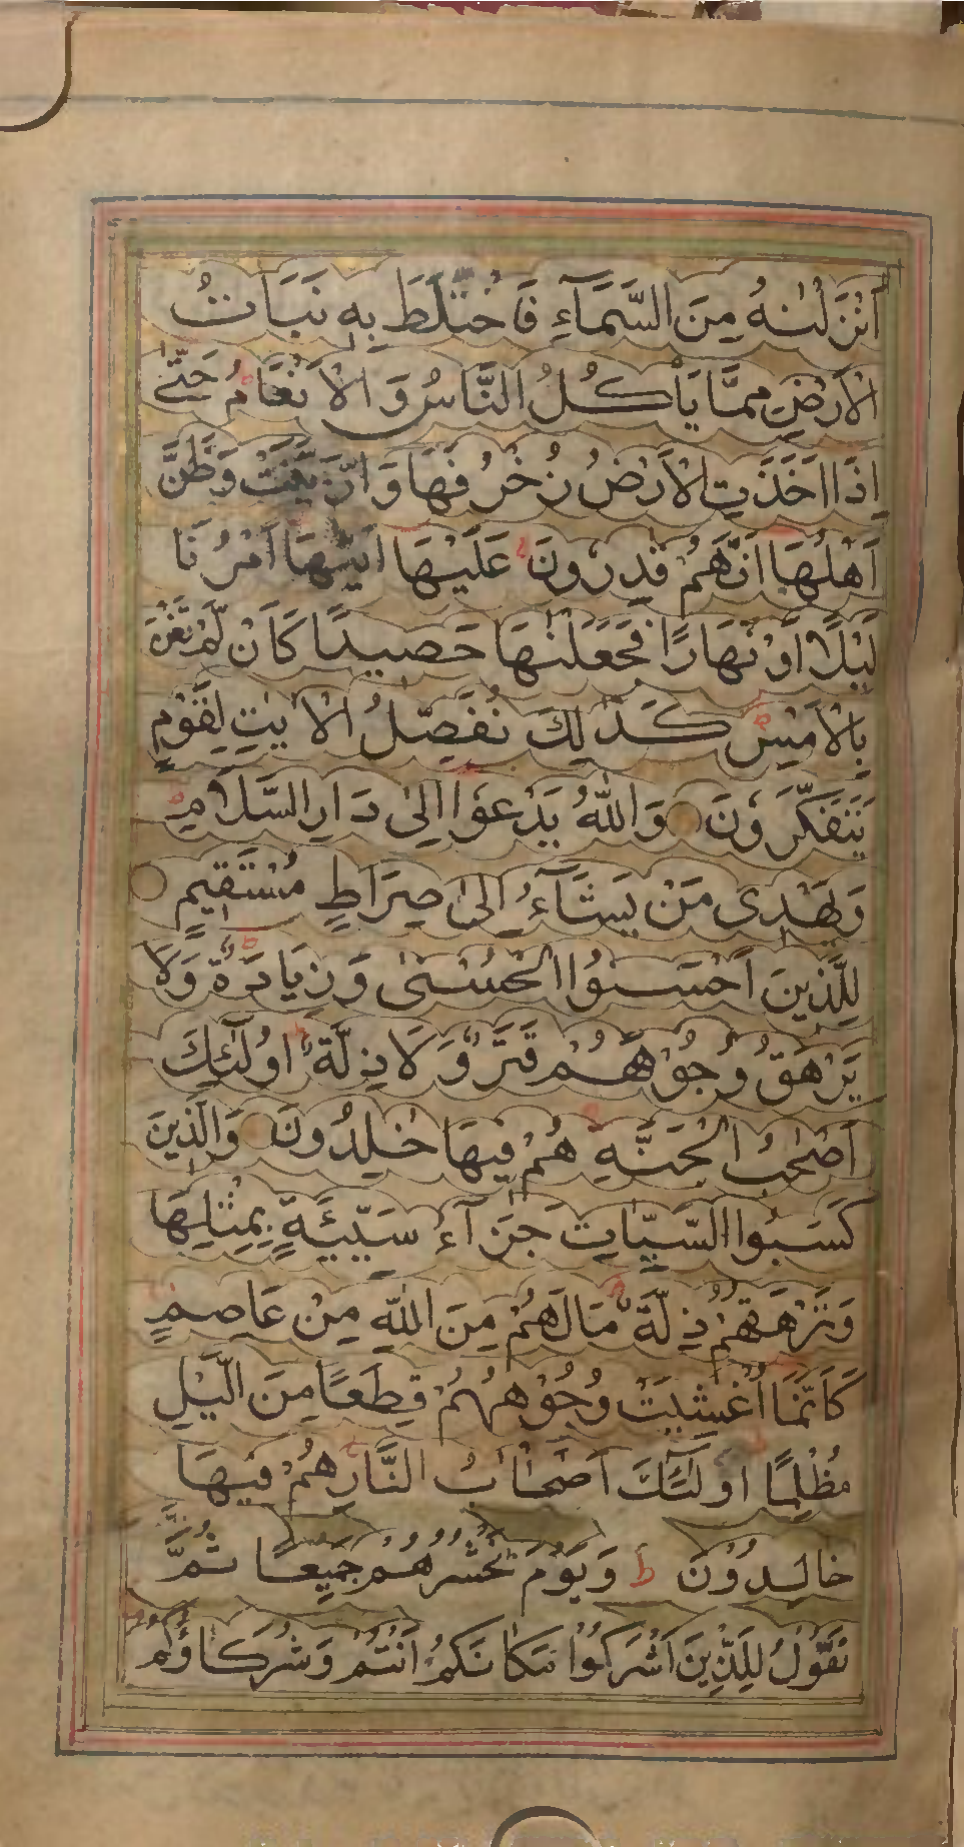 اَنْزَلْنٰهُ مِنَ السَّمَآءِ فَاخْتَلَطَ بِهٖ نَبَاتُ
الْاَرْضِ مِمَّا يَاْكُلُ النَّاسُ وَالْاَنْعَامُ ط حَتّٰى
اِذَا اَخَذَتِ الْاَرْضُ زُخْرُفَهَا وَازَّيَّنَتْ وَظَنَّ
اَهْلُهَا اَنَّهُمْ قٰدِرُوْنَ عَلَيْهَا اَتٰىهَا اَمْرُنَا
لَيْلًا اَوْ نَهَارًا فَجَعَلْنٰهَا حَصِيْدًا كَاَنْ لَّمْ تَغْنَ
بِالْاَمْسِ ط كَذٰلِكَ نُفَصِّلُ الْاٰيٰتِ لِقَوْمٍ
يَّتَفَكَّرُوْنَ وَاللّٰهُ يَدْعُوْا اِلٰى دَارِ السَّلَامِ ط
وَيَهْدِىْ مَنْ يَشَآءُ اِلٰى صِرَاطٍ مُسْتَقِيْمٍ
لِلَّذِيْنَ اَحْسَنُوا الْحُسْنٰى وَزِيَادَةٌ ط وَلَا
يَرْهَقُ وُجُوْهَهُمْ قَتَرٌ وَّلَا ذِلَّةٌ ط اُولٰٓئِكَ
اَصْحٰبُ الْجَنَّةِ هُمْ فِيْهَا خٰلِدُوْنَ وَالَّذِيْنَ
كَسَبُوا السَّيِّاٰتِ جَزَآءُ سَيِّئَةٍ بِمِثْلِهَا
وَتَرْهَقُهُمْ ذِلَّةٌ ط مَا لَهُمْ مِنَ اللّٰهِ مِنْ عَاصِمٍ
كَاَنَّمَا اُغْشِيَتْ وُجُوْهُهُمْ قِطَعًا مِنَ الَّيْلِ
مُظْلِمًا اولٰٓئِكَ اَصْحَابُ النَّارِ هُمْ فِيْهَا
خالِدُوْنَ ط وَيَوْمَ نَحْشُرُهُمْ جَمِيْعًا ثُمَّ
نَقُوْلُ لِلَّذِيْنَ اَشْرَكُوْا مَكَانَكُمْ اَنْتُمْ وَشُرَكَاؤُكُمْ